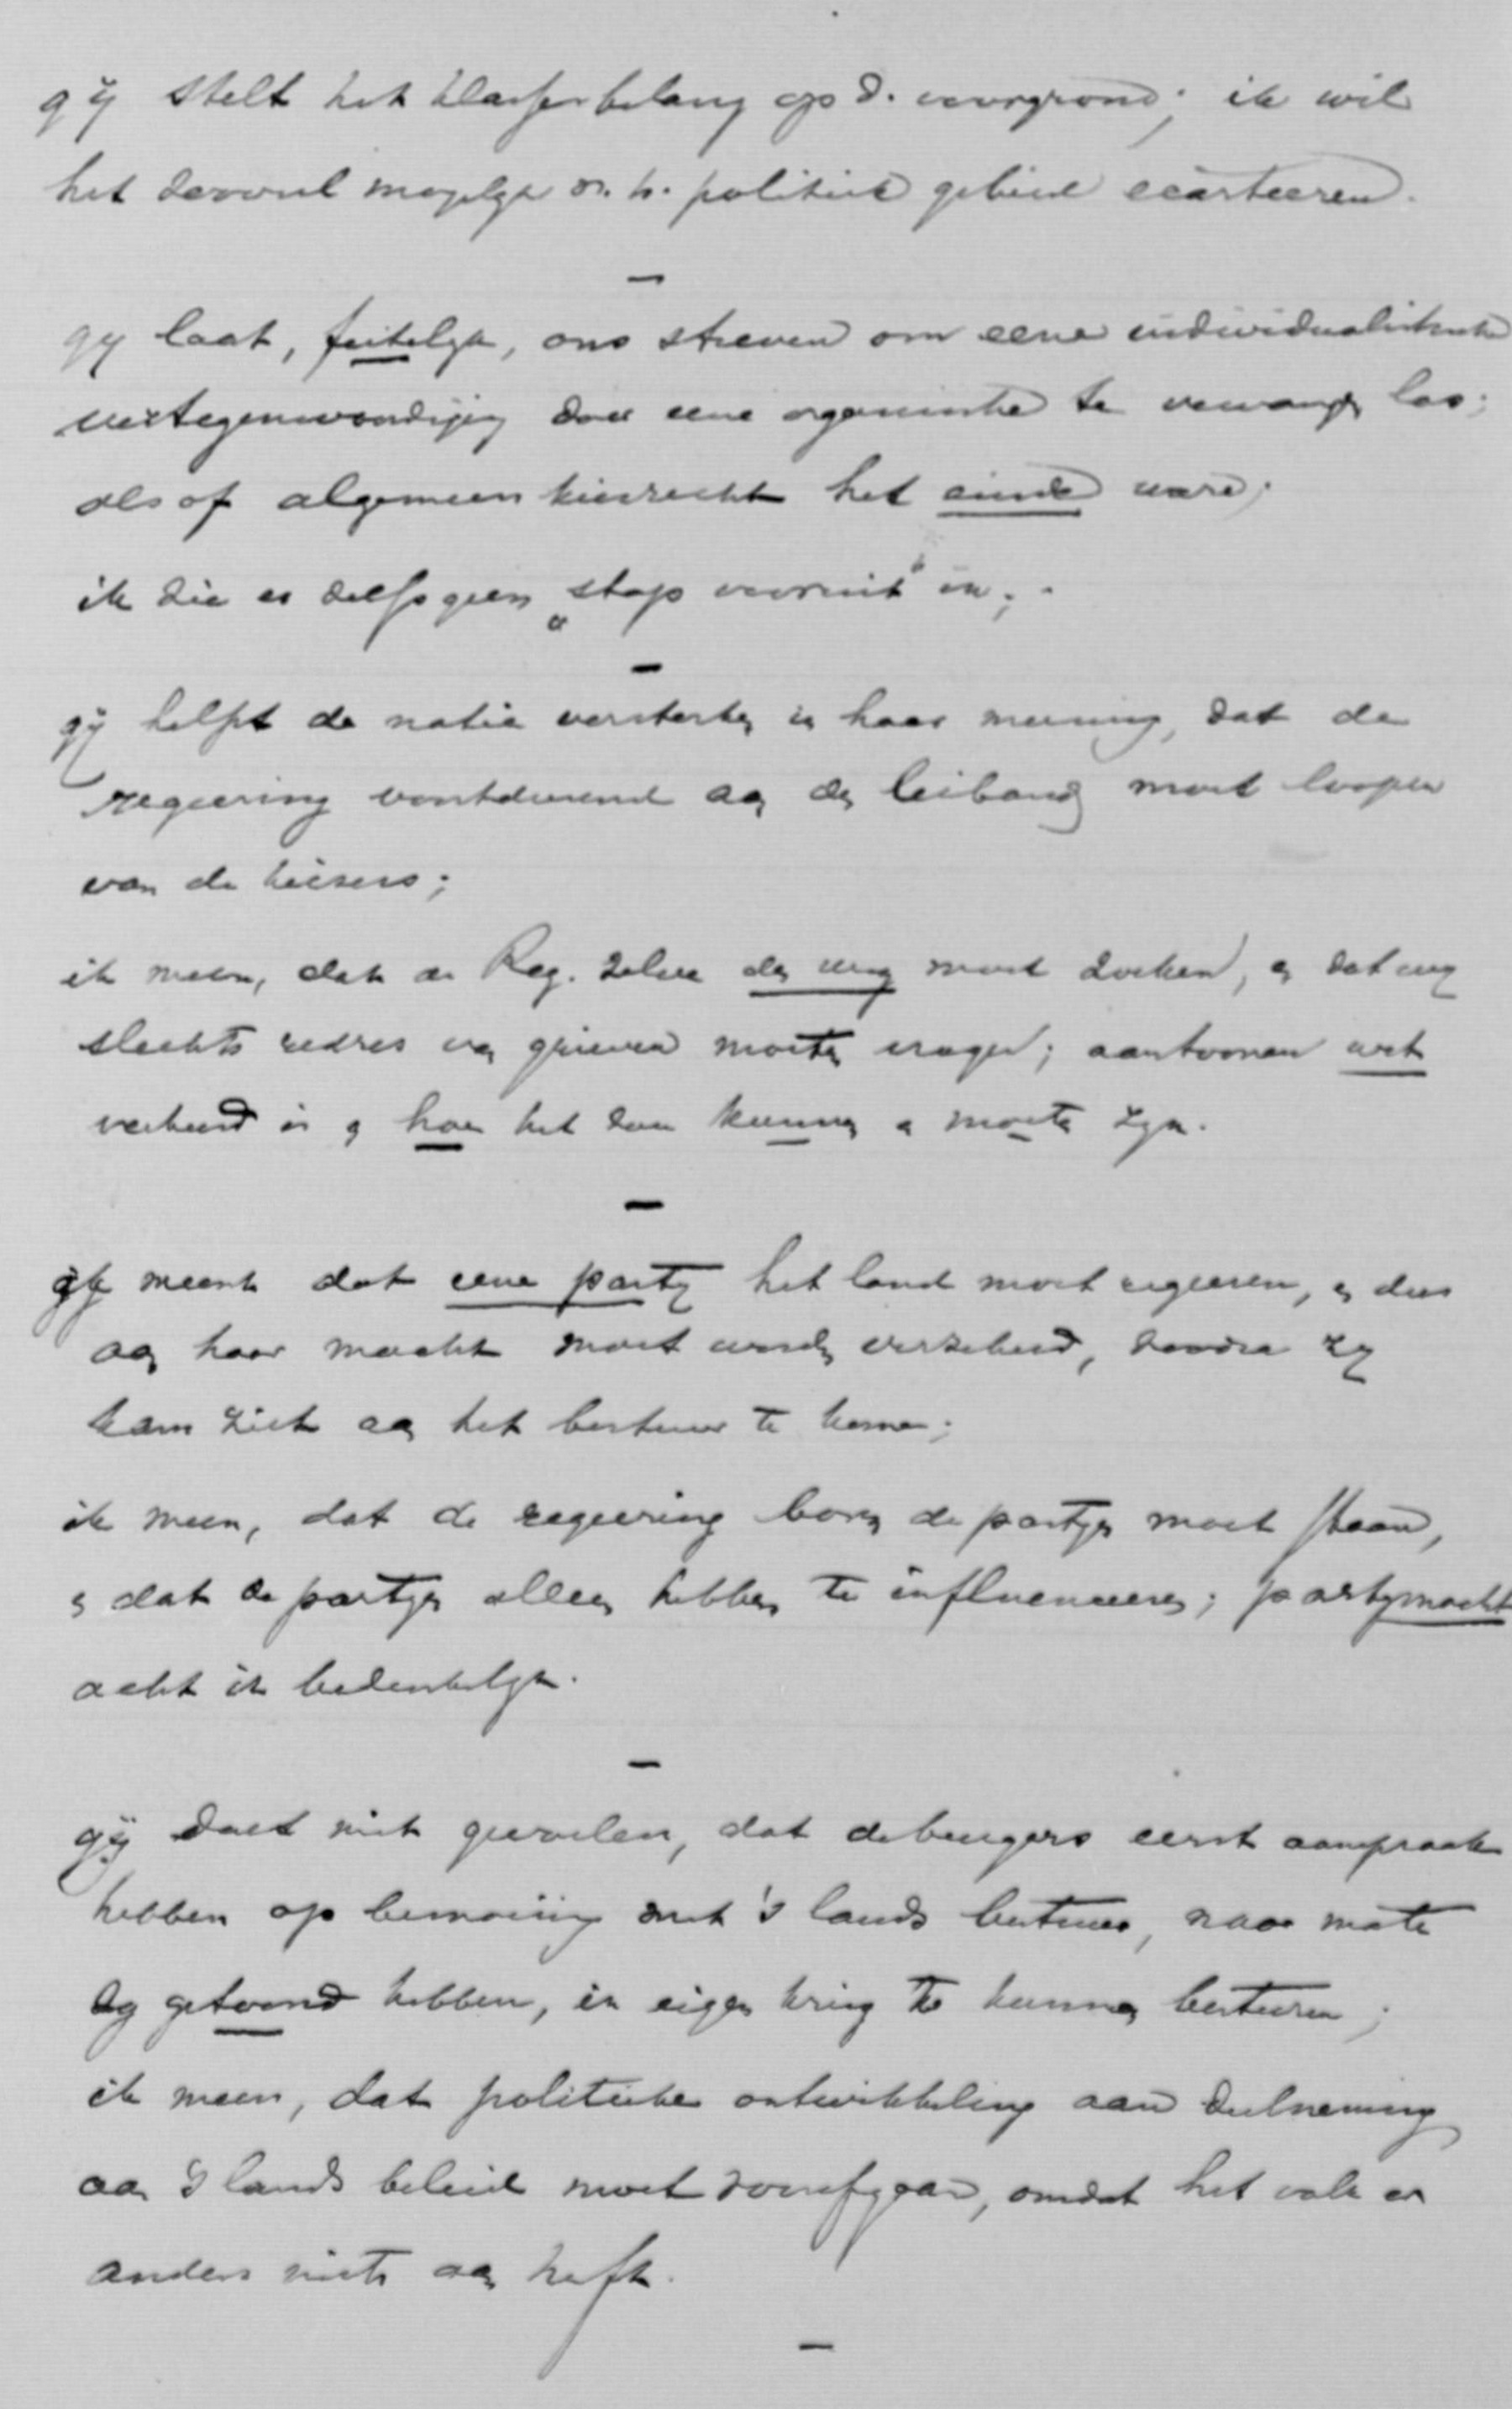 gij stelt het klassenbelang op d. voorgrond; ik wil
het zooveel mogelijk v. h. politiek gebied ecarteeren.
—
gij laat, feitelijk, ons streven om eene individualistische
vertegenwoordiging door eene organische te vervangen los;
alsof algemeen kiesrecht het einde ware;
ik zie er zelfs geen „stap vooruit" in;
—
gij helpt de natie versterken in haar meening, dat de
regeering voortdurend aan den leiband moet loopen
van de kiezers;
ik meen, dat de Reg. zelve den weg moet zoeken, en dat wij
slechts redres van grieven moeten vragen; aantoonen wat
verkeerd is en hoe het zou kunnen en moeten zijn.
—
gij meent dat eene partij het land moet regeeren, en dus
aan haar macht moet worden verzekerd, zoodra zij
kans ziet aan het bestuur te komen;
ik meen, dat de regeering boven de partijen moet staan,
en dat de partijen alleen hebben te influenceeren; partijmacht
acht ik bedenkelijk.
—
gij doet niet gevoelen, dat de burgers eerst aanspraak
hebben op bemoeiing met 's lands bestuur, naar mate
zij getoond hebben, in eigen kring te kunnen besturen;
ik meen, dat politieke ontwikkeling aan deelneming
aan 's lands beleid moet voorafgaan, omdat het volk er
anders niets aan heeft.
—